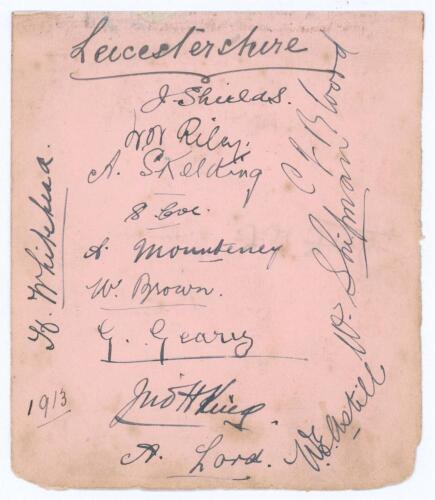 Leicestershire
J. Shields.
W N Riley.
A. Skelding
S Coe.
A. Mounteney
W. Brown.
G. Geary
Jno H King.
A. Lord.
H. Whitehead.
1913
W. E. Astill
W. Shipman
C E Blood